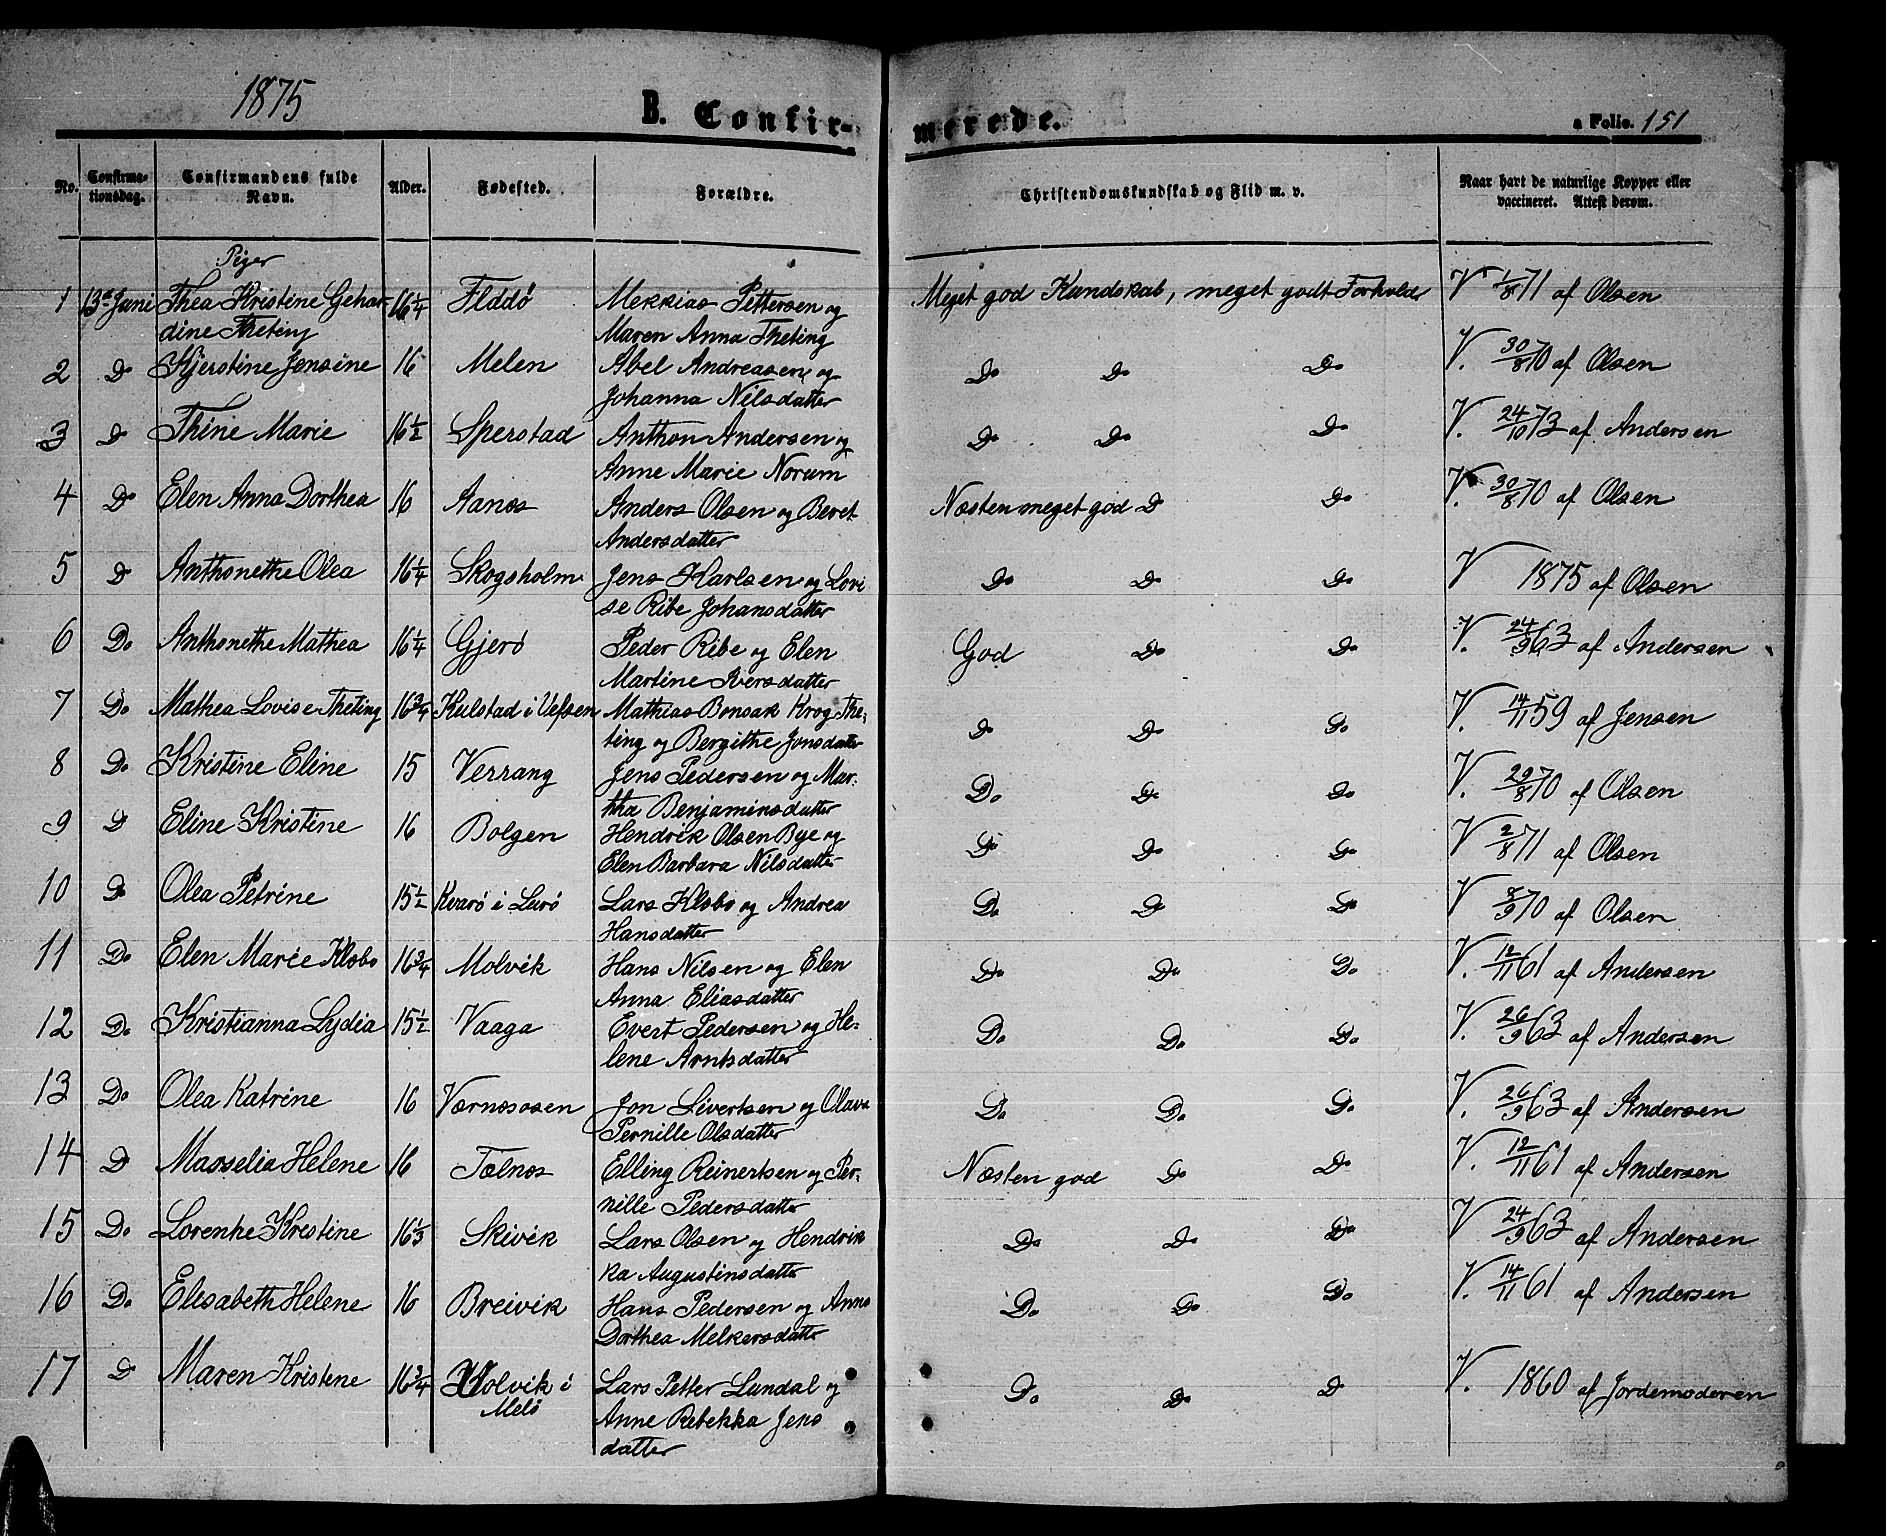 1875
B. Confir-
merede.
a Folio. 151
No.
Confirma-
tionsdag.
Confirmandens fulde
Navn.
Alder.
Fødested.
Forældre.
Christendomskundskab og Flid m. v.
Naar havt de naturlige Kopper eller
vaccineret. Attest derom.
Piger
1 13de Juni Thea Kristine Gehar- 16 1/4 Flddö Mekkias Pettersen og Meget god Kundskab, meget godt Forhold V 1/8 71 af Olsen
dine Theting Maren Anna Theting
2 Do Kjerstine Jensine 16 Melen Abel Andreasen og Do Do Do V. 30/8 70 af Olsen
Johanna Nilsdatter
3 Do Thine Marie 16 1/2 Sperstad Anthon Andersen og Do Do Do V. 24/10 73 af Andersen
Anne Marie Norum
4 Do Elen Anna Dorthea 16 Aanes Anders Olsen og Beret Næsten meget god Do Do V. 30/8 70 af Olsen
Andersdatter
5 Do Anthonethe Olea 16 1/4 Skogsholm Jens Karlsen og Lovi Do Do Do V 1875 af Olsen
se Ribe Johansdatter
6 Do Anthonethe Mathea 16 1/4 Gjerö Peder Ribe og Elen God Do Do V. 24/9 63 af Andersen
Martine Iversdatter
7 Do Mathea Lovise Theting 16 3/4 Kulstad i Vefsen Mathias Bonsak Krog The- Do Do Do V. 14/11 59 af Jensen
ting og Bergithe Jonsdatter
8 Do Kristine Eline 15 Verrang Jens Pedersen og Mar- Do Do Do V. 29/8 70 af Olsen
tha Benjaminsdatter
9 Do Eline Kristine 16 Bolgen Hendrik Olsen Bye og Do Do Do V 2/8 71 af Olsen
Elen Barbara Nilsdatter
10 Do Olea Petrine 15 1/2 Kvarö i Lurö Lars Klobo og Andrea Do Do Do V 8/9 70 af Olsen
Hansdatter
11 Do Elen Marie Klobo 16 3/4 Molvik Hans Nilsen og Elen Do Do Do V. 12/11 61 af Andersen
Anna Eliasdatter
12 Do Kristianna Lydia 15 1/2 Vaaga Evert Pedersen og He- Do Do Do V. 26/9 63 af Andersen
lene Arntsdatter
13 Do Olea Katrine 16 Værnesosen Jon Sivertsen og Olava Do Do Do V. 26/9 63 af Andersen
Pernille Olsdatter
14 Do Masselia Helene 16 Tælnes Elling Reinertsen og Per- Næsten god Do Do V. 12/11 61 af Andersen
nille Pedersdatter
15 Do Lorenthe Kristine 16 1/3 Skivik Lars Olsen og Hendrik Do Do Do V 24/9 63 af Andersen
ka Augustinsdatter
16 Do Elisabeth Helene 16 Breivik Hans Pedersen og Anna Do Do Do V. 14/11 61 af Andersen
Dorthea Melkersdatter
17 Do Maren Kristene 16 3/4 Holvik i Lars Petter Lundal og Do Do Do V. 1860 af Jordemoderen
Melö Anne Rebekka Jens
datter